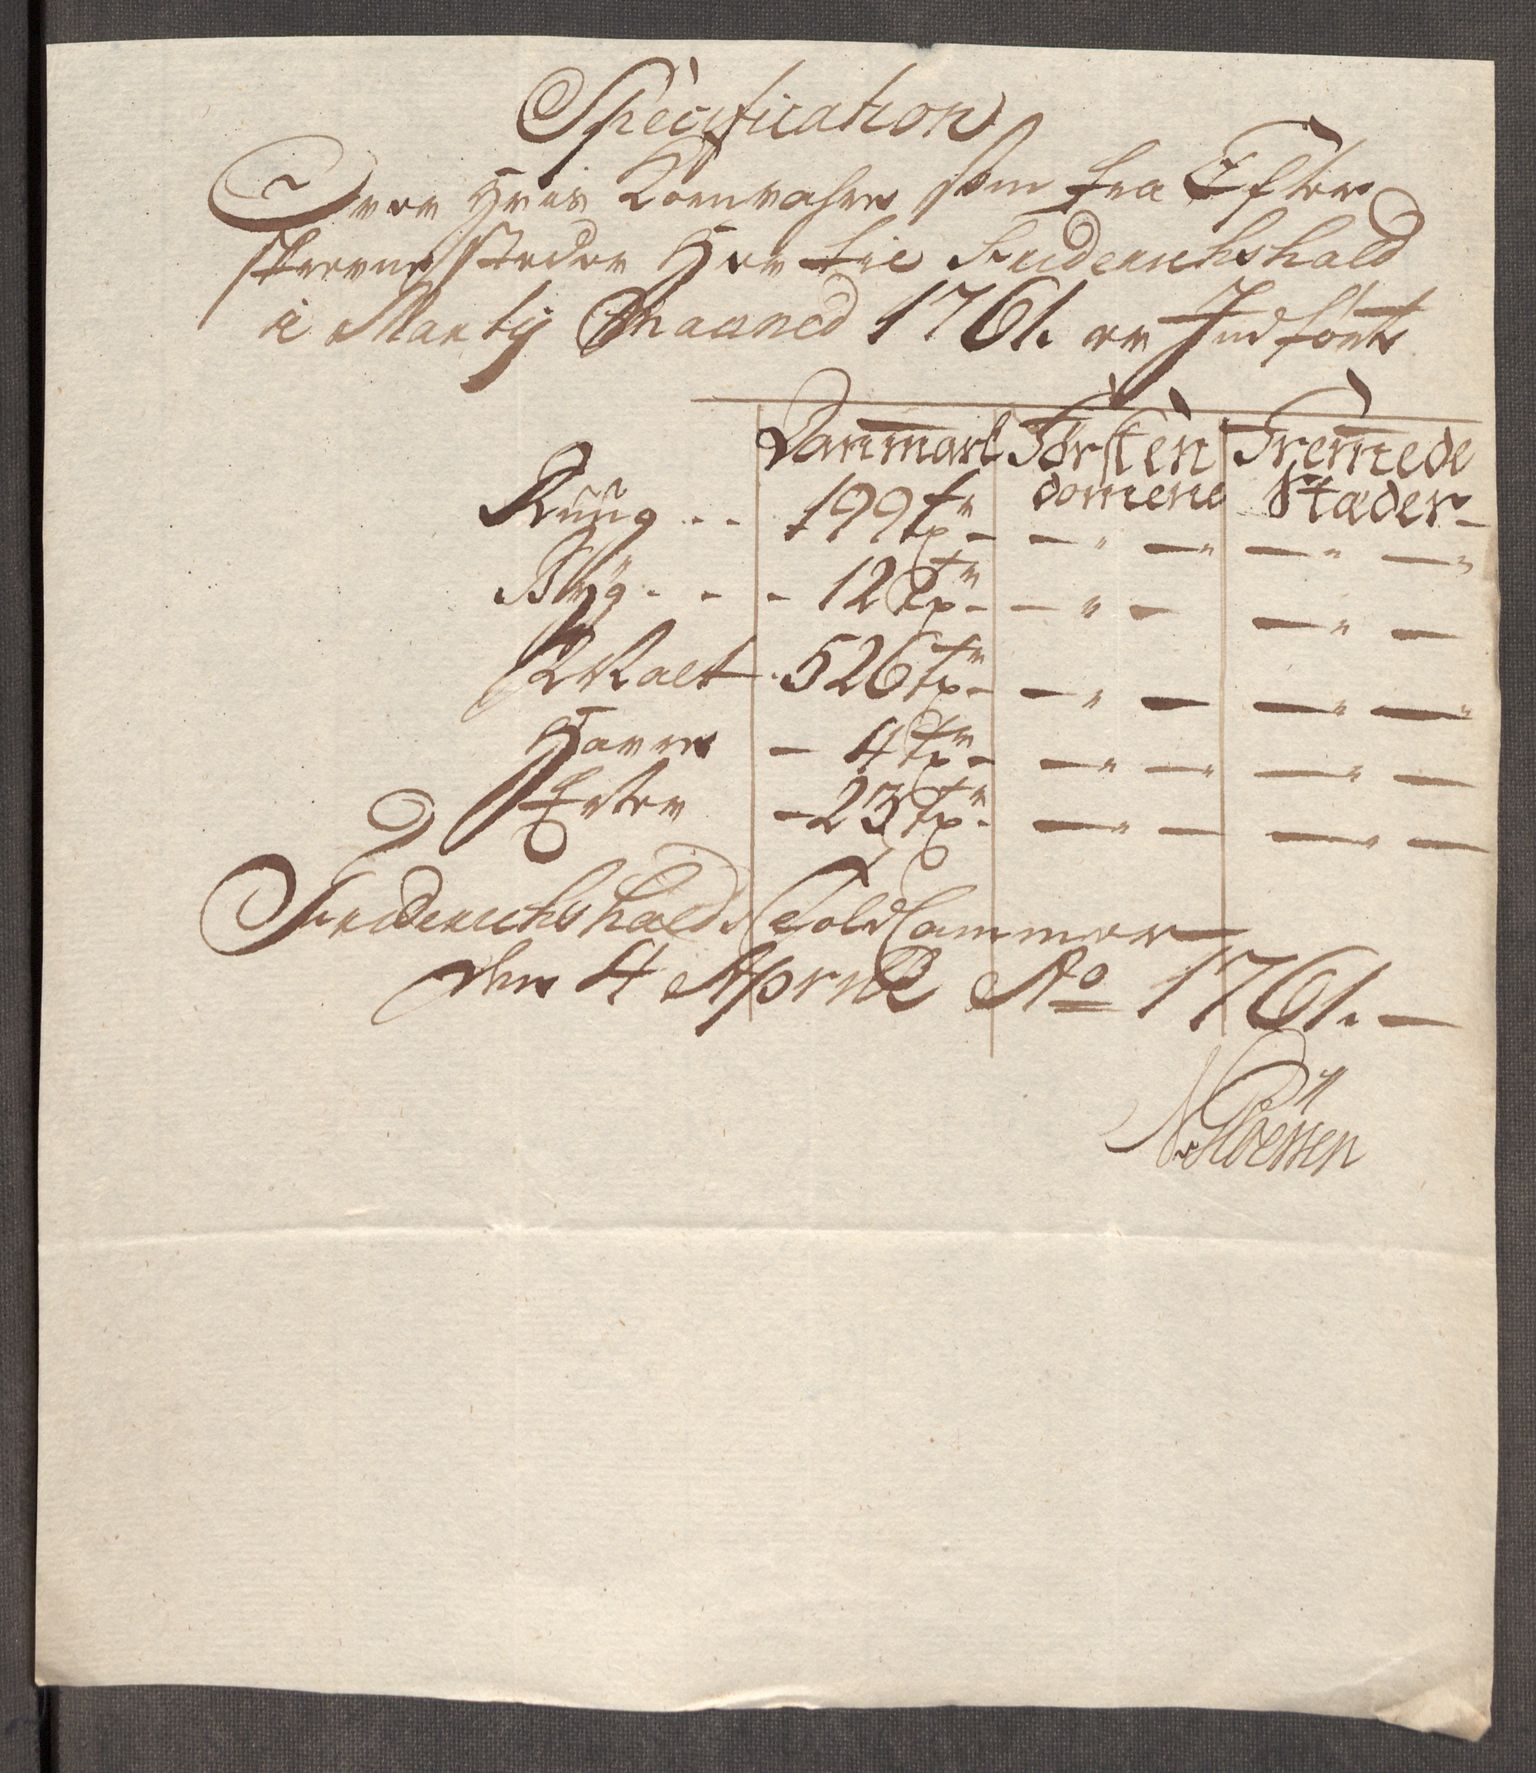 Specification
Over Hvis Kornvahre som fra Efter
skrevne steder Her til Friderichshald
i Marty Maaned 1761. er Indført
Danmark Førsten Fremede
domene Stæder
Rüüg .. 199 tr
Byg . . - 12 tr
Malt . 526 tr
Havre - 4 tr
Erter - 23 tr
Friderichshalds Told Cammer
den 4 April Ao 1761. -